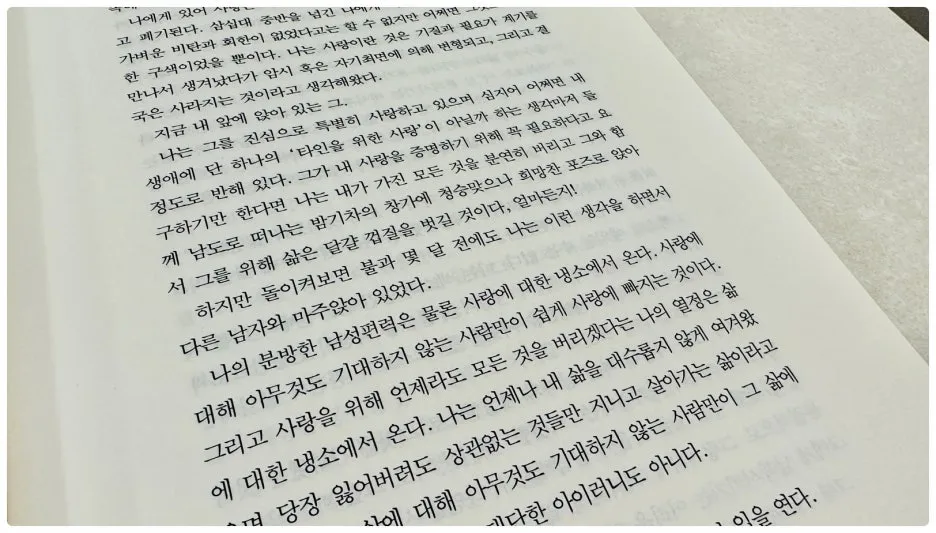 나에게 있어 사랑은
고 폐기된다. 삼십대 중반을 넘긴 나에게
가벼운 비탄과 회한이 없었다고는 할 수 없지만 어쩌면 그것
한 구색이었을 뿐이다. 나는 사랑이란 것은 기질과 필요가 계기를
만나서 생겨났다가 암시 혹은 자기최면에 의해 변형되고, 그리고 결
국은 사라지는 것이라고 생각해왔다.
지금 내 앞에 앉아 있는 그.
나는 그를 진심으로 특별히 사랑하고 있으며 심지어 어쩌면 내
생애에 단 하나의 ‘타인을 위한 사랑’이 아닐까 하는 생각마저 들
정도로 반해 있다. 그가 내 사랑을 증명하기 위해 꼭 필요하다고 요
구하기만 한다면 나는 내가 가진 모든 것을 분연히 버리고 그와 함
께 남도로 떠나는 밤기차의 창가에 청승맞으나 희망찬 포즈로 앉아
서 그를 위해 삶은 달걀 껍질을 벗길 것이다, 얼마든지!
하지만 돌이켜보면 불과 몇 달 전에도 나는 이런 생각을 하면서
다른 남자와 마주앉아 있었다.
나의 분방한 남성편력은 물론 사랑에 대한 냉소에서 온다. 사랑에
대해 아무것도 기대하지 않는 사람만이 쉽게 사랑에 빠지는 것이다.
그리고 사랑을 위해 언제라도 모든 것을 버리겠다는 나의 열정은 삶
에 대한 냉소에서 온다. 나는 언제나 내 삶을 대수롭지 않게 여겨왔
으며 당장 잃어버려도 상관없는 것들만 지니고 살아가는 삶이라고
삶에 대해 아무것도 기대하지 않는 사람만이 그 삶에
대단한 아이러니도 아니다.
입을 연다.